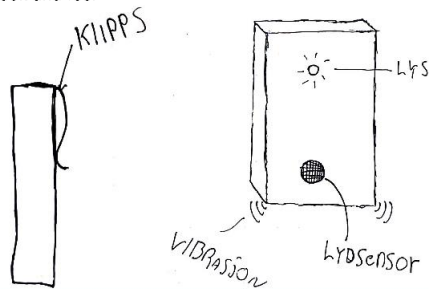 KlIPPS
LYS
VIBRASJON
LYDSENSOR